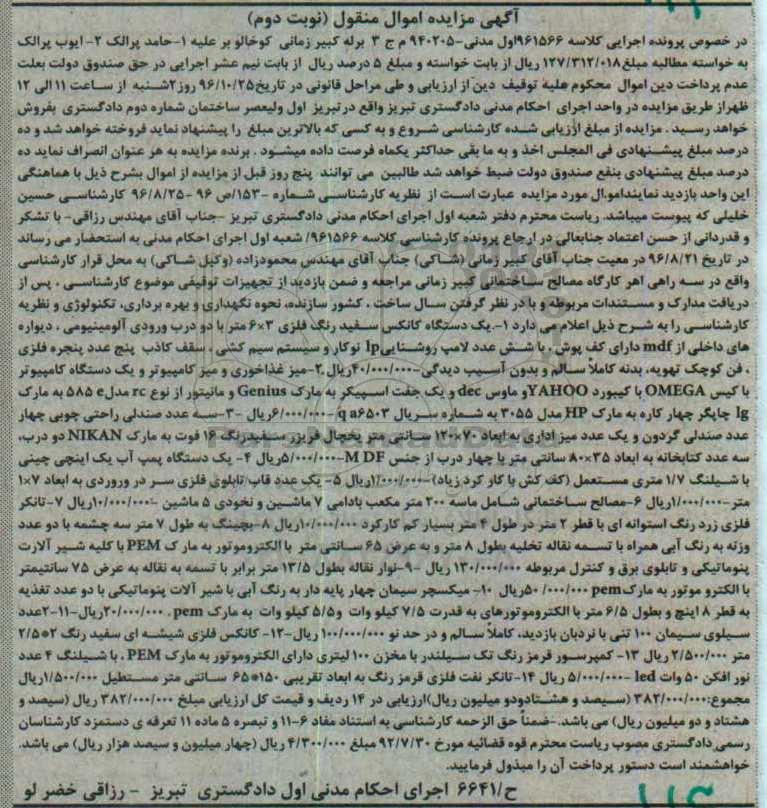 آگهی مزایده اموال منقول (نوبت دوم)
در خصوص پرونده اجرایی کلاسه ۹۶۱۵۶۶/اول مدنی-۹۴۰۲۰۵ م ج ۳ برله کبیر زمانی کوخالو بر علیه ۱-حامد پرالک ۲- ایوب پرالک
به خواسته مطالبه مبلغ ۱۲۷/۳۱۲/۰۱۸ ریال از بابت خواسته و مبلغ ۵ درصد ریال از بابت نیم عشر اجرایی در حق صندوق دولت بعلت
عدم پرداخت دین اموال محکوم علیه توقیف دین از ارزیابی و طی مراحل قانونی در تاریخ ۹۶/۱۰/۲۵ روز ۲شنبه از ساعت ۱۱ الی ۱۲
ظهر از طریق مزایده در واحد اجرای احکام مدنی دادگستری تبریز واقع در تبریز اول ولیعصر ساختمان شماره دوم دادگستری بفروش
خواهد رسید . مزایده از مبلغ ارزیابی شده کارشناسی شروع و به کسی که بالاترین مبلغ را پیشنهاد نماید فروخته خواهد شد و ده
درصد مبلغ پیشنهادی فی المجلس اخذ و به ما بقی حداکثر یکماه فرصت داده میشود . برنده مزایده به هر عنوان انصراف نماید ده
درصد مبلغ پیشنهادی بنفع صندوق دولت ضبط خواهد شد طالبین می توانند پنج روز قبل از مزایده از اموال بشرح ذیل با هماهنگی
این واحد بازدید نمایند اموال مورد مزایده عبارت است از نظریه کارشناسی شماره -۱۵۳/ص ۹۶ -۹۶/۸/۲۵ کارشناسی حسین
خلیلی که پیوست میباشد. ریاست محترم دفتر شعبه اول اجرای احکام مدنی دادگستری تبریز -جناب آقای مهندس رزاقی- با تشکر
و قدردانی از حسن اعتماد جنابعالی در ارجاع پرونده کارشناسی کلاسه ۹۶۱۵۶۶/ شعبه اول اجرای احکام مدنی به استحضار می رساند
در تاریخ ۹۶/۸/۲۱ در معیت جناب آقای کبیر زمانی (شاکی) جناب آقای مهندس محمودزاده (وکیل شاکی) به محل قرار کارشناسی
واقع در سه راهی اهر کارگاه مصالح ساختمانی کبیر زمانی مراجعه و ضمن بازدید از تجهیزات توقیفی موضوع کارشناسی ، پس از
دریافت مدارک و مستندات مربوطه و با در نظر گرفتن سال ساخت ، کشور سازنده، نحوه نگهداری و بهره برداری، تکنولوژی و نظریه
کارشناسی را به شرح ذیل اعلام می دارد ۱-یک دستگاه کانکس سفید رنگ فلزی ۳×۶ متر با دو درب ورودی آلومینیومی ، دیواره
های داخلی از mdf دارای کف پوش ، با شش عدد لامپ روشنایی lp توکار و سیستم سیم کشی ، سقف کاذب پنج عدد پنجره فلزی
، فن کوچک تهویه، بدنه کاملا سالم و بدون آسیب دیدگی-۴۰/۰۰۰/۰۰۰ریال ۲-میز غذاخوری و میز کامپیوتر و یک دستگاه کامپیوتر
با کیس OMEGA با کیبورد YAHOO و ماوس dec و یک جفت اسپیکر به مارک Genius و مانیتور از نوع rc مدل ۵۸۵ e به مارک
lg چاپگر چهار کاره به مارک HP مدل ۳۰۵۵ به شماره سریال q a۶۵۰۳/-۶/۰۰۰/۰۰۰ریال -۳-سه عدد صندلی راحتی چوبی چهار
عدد صندلی گردون و یک عدد میز اداری به ابعاد ۷۰×۱۲۰ سانتی متر یخچال فریزر سفیدرنگ ۱۶ فوت به مارک NIKAN دو درب،
سه عدد کتابخانه به ابعاد ۳۵×۸۰ سانتی متر با چهار درب از جنس M DF-۵/۰۰۰/۰۰۰ریال ۴- یک دستگاه پمپ آب یک اینچی چینی
با شیلنگ ۱/۷ متری مستعمل (کف کش با کار کرد زیاد)-۱/۰۰۰/۰۰۰ریال ۵- یک عدد قاب تابلوی فلزی سر در ورودی به ابعاد ۷×۱
متر-۱/۰۰۰/۰۰۰ریال ۶-مصالح ساختمانی شامل ماسه ۲۰۰ متر مکعب بادامی ۷ ماشین و نخودی ۵ ماشین -۱۰/۰۰۰/۰۰۰ریال ۷-تانکر
فلزی زرد رنگ استوانه ای با قطر ۲ متر در طول ۴ متر بسیار کم کارکرد ۱۰/۰۰۰/۰۰۰ریال ۸-بچینگ به طول ۷ متر سه چشمه با دو عدد
وزنه به رنگ آبی همراه با تسمه نقاله تخلیه بطول ۸ متر و به عرض ۶۵ سانتی متر با الکتروموتور به مار ک PEM با کلیه شیر آلارت
پنوماتیکی و تابلوی برق و کنترل مربوطه ۱۳۰/۰۰۰/۰۰۰ ریال -۹-نوار نقاله بطول ۱۳/۵ متر برابر با تسمه به نقاله به عرض ۷۵ سانتیمتر
با الکترو موتور به مارک pem ۵۰/۰۰۰/۰۰۰ریال ۱۰- میکسچر سیمان چهار پایه دار به رنگ آبی با شیر آلات پنوماتیکی با دو عدد تغذیه
به قطر ۸ اینچ و بطول ۶/۵ متر با الکتروموتورهای به قدرت ۷/۵ کیلو وات و۵/۵ کیلو وات به مارک pem . ۲۰/۰۰۰/۰۰۰ریال-۱۱-۲عدد
سیلوی سیمان ۱۰۰ تنی با نردبان بازدید، کاملا سالم و در حد نو ۱۰۰/۰۰۰/۰۰۰ ریال-۱۲- کانکس فلزی شیشه ای سفید رنگ ۲*۲/۵
متر ۲/۵۰۰/۰۰۰ ریال ۱۳- کمپرسور قرمز رنگ تک سیلندر با مخزن ۱۰۰ لیتری دارای الکتروموتور به مارک PEM ، با شیلنگ ۴ عدد
نور افکن ۵۰ وات led -۵/۰۰۰/۰۰۰ ریال ۱۴-تانکر نفت فلزی قرمز رنگ به ابعاد تقریبی ۱۵۰*۶۵ سانتی متر مستطیل ۱/۵۰۰/۰۰۰ریال
مجموع:۳۸۲/۰۰۰/۰۰۰ (سیصد و هشتادودو میلیون ریال)ارزیابی در ۱۴ ردیف و قیمت کل ارزیابی مبلغ ۳۸۲/۰۰۰/۰۰۰ ریال (سیصد و
هشتاد و دو میلیون ریال) می باشد. -ضمناً حق الزحمه کارشناسی به استناد مفاد ۶-۱۱ و تبصره ۵ ماده ۱۱ تعرفه ی دستمزد کارشناسان
رسمی دادگستری مصوب ریاست محترم قوه قضائیه مورخ ۹۲/۷/۳۰ مبلغ ۴/۳۰۰/۰۰۰ ریال (چهار میلیون و سیصد هزار ریال) می باشد.
خواهشمند است دستور پرداخت آن را مبذول فرمایید.
ح/۶۶۴۱ اجرای احکام مدنی اول دادگستری تبریز - رزاقی خضر لو